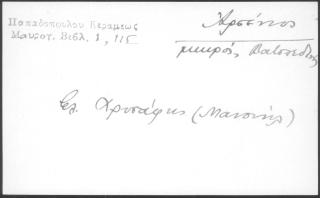 Παπαδοπούλου Κεραμεως
Μαυροτ. Βιβλ. 1, 115
Ἀρσένιος
μικρός, Βατοπεδινός
Βλ. Χρυσάφης (Μανουήλ)